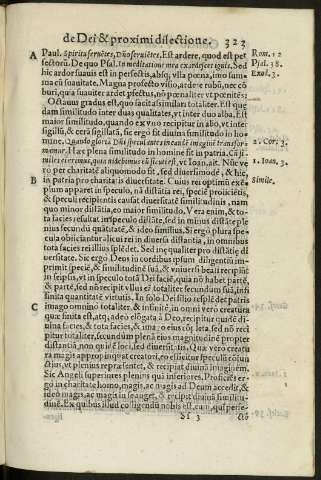 de Dei & proximi dilectione. 323
A Paul. Spiritu feruẽtes, Dño seruiẽtes. Est ardere, quod est pet Rom. 12
fectorũ. De quo Psal. In meditatione mea exardescet ignis. Sed Psal. 38.
hic ardor suauis est in perfectis, absq; vlla pœna, imo sum- Exod. 3.
ma cũ suauitate. Magna profecto visio, ardere rubũ, nec cõ
buri, quia suauiter ardet pfectus, nõ pœnaliter vt pœnitẽs:
Octauus gradus est, quo facit assimilari totaliter. Est quę
dam similitudo inter duas qualitates, vt inter duo alba. Est
maior similitudo, quando ex vno recipitur in alio, vt inter
sigillũ, & cerã sigillatã, sic ergo sit diuina similitudo in ho-
mine. Quando gloriã Dñi speculantes in eandẽ imaginẽ transfor- 2. Cor. 3.
mamur. Hæc plena similitudo in homine sit in patria. Cũ si-
miles ei erimus, quia videbimus eũ sicuti est, vt Ioan. ait. Nũc ve 1. Ioan. 3.
ro per charitatẽ aliquomodo sit, sed diuersimodè, & hic,
B in patria pro charitatis diuersitate. Cuius rei optimũ exẽ- Simile.
plum apparet in speculo, nã distãtia rei, specie proijciẽtis,
& speculi recipientis causat diuersitatẽ similitudinis, nam
quo minor distãtia, eo maior similitudo. Vera enim, & to-
ta facies resultat in speculo distãte, sed in minus distãte ple
nius secundũ quãtitatẽ, & ideo similius. Si ergo plura spe-
cula obijciantur alicui rei in diuersa distantia, in omnibus
tota facies rei illius splẽdet. Sed inęqualiter pro distãtię di-
uersitate. Sic ergo Deus in cordibus ipsum diligentiũ im-
primit speciẽ, & similitudinẽ suã, & vniuersi beati recipiũt
in seipsis, vt in speculo totã Dei faciẽ, quia nõ habet partẽ,
& partẽ, sed nõ recipit vllus eã totaliter secundum suã, infi
finita quantitatẽ virtutis. In solo Dei filio resplẽdet patris
C imago omnino totaliter, & infinitè, in omni vero creatura
quæ finita est, atq; adeo elõgata à Deo, recipitur quidẽ di-
uina facies, & tota facies, & imago eius cõpleta, sed nõ reci
pitur totaliter, secundum plenã eius magnitudinẽ propter
distantiã, non quidẽ loci, sed diuersitatis. Quæ vero creatu
ra magis appropinquat creatori, eo efficitur speculũ cõiun
ctius, vt plenius repræsentet, & recipiat diuinã imaginẽm.
Sic Angeli superiores plenius quã inferiores. Proficiẽs er-
go in charitate homo, magis, ac magis ad Deum accedit, &
ideo magis, ac magis in se auget, & recipit diuinã similitu-
dinẽ. Ex quibus illud colligendũ nobis est, eum, qui perse-
Sſ 3 ctè